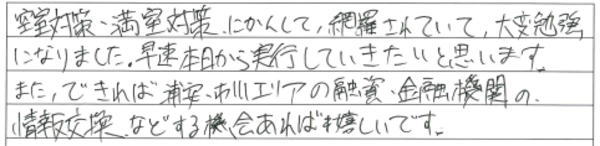 空室対策、満室対策にかんして,網羅されていて,大変勉強
になりました。早速本日から実行していきたいと思います。
また,できれば浦安、市川エリアの融資、金融機関の
情報交換などする機会あれば嬉しいです。